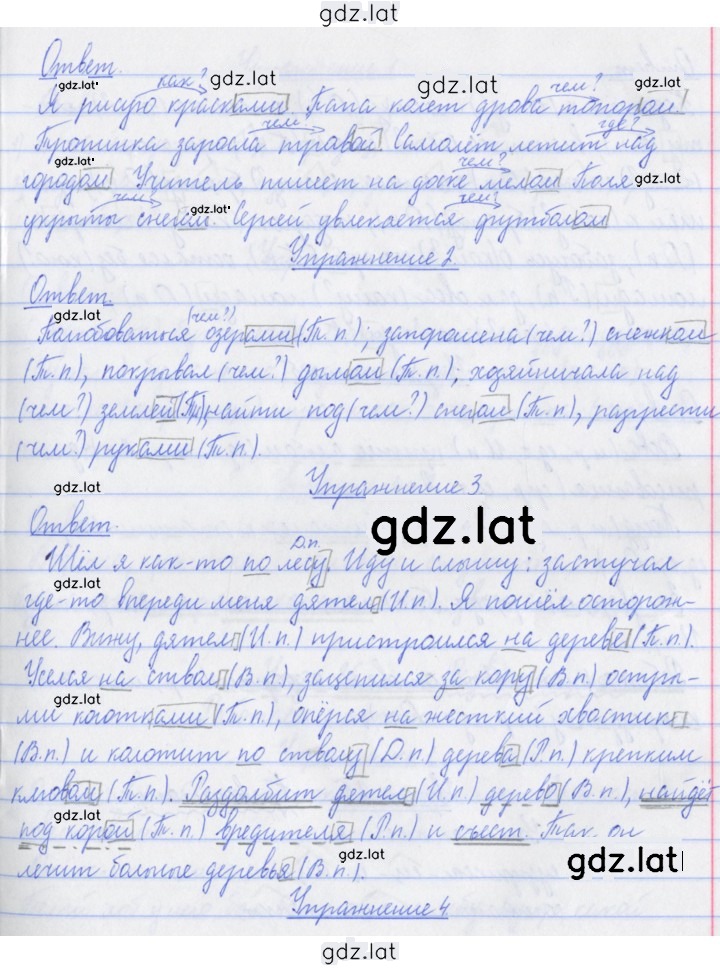 gdz.lat
Ответ.
как? gdz.lat gdz.lat чем?
gdz.lat
Я рисую красками. Папа колет дрова топором.
чем? где?
Тропинка заросла травой. Самолёт летит над
gdz.lat чем? gdz.lat
городом. Учитель пишет на доске мелом. Поля
чем? gdz.lat чем?
укрыты снегом. Сергей увлекается футболом
Упражнение 2
Ответ.
gdz.lat (чем?)
Полюбоваться озерами (Т.п.); запорошена (чем?) снежком
(Т.п.), покрывал (чем?) дымом (Т.п.); хозяйничала над
(чем?) землей (Тп), найти под (чем?) снегом (Т.п.), разгрести
(чем?) руками (Т.п.).
gdz.lat Упражнение 3
Ответ. gdz.lat
Д.п.
Шёл я как-то по лесу. Иду и слышу: застучал
gdz.lat
где-то впереди меня дятел (И.п.). Я пошёл осторож-
нее. Вижу, дятел (И.п.) пристроился на дереве (П.п.).
Уселся на ствол (В.п.), зацепился за кору (В.п.) остры-
gdz.lat
ми коготками (Т.п.), опёрся на жесткий хвостик
(В.п.) и колотит по стволу (Д.п.) дерева (Р.п.) крепким
gdz.lat
клювом (Т.п.). Раздолбит дятел (И.п.) дерево (В.п.), найдёт
под корой (Т.п.) вредителя (Р.п.) и съест. Так он
gdz.lat gdz.lat
лечит больные деревья (В.п.).
Упражнение 4
gdz.lat